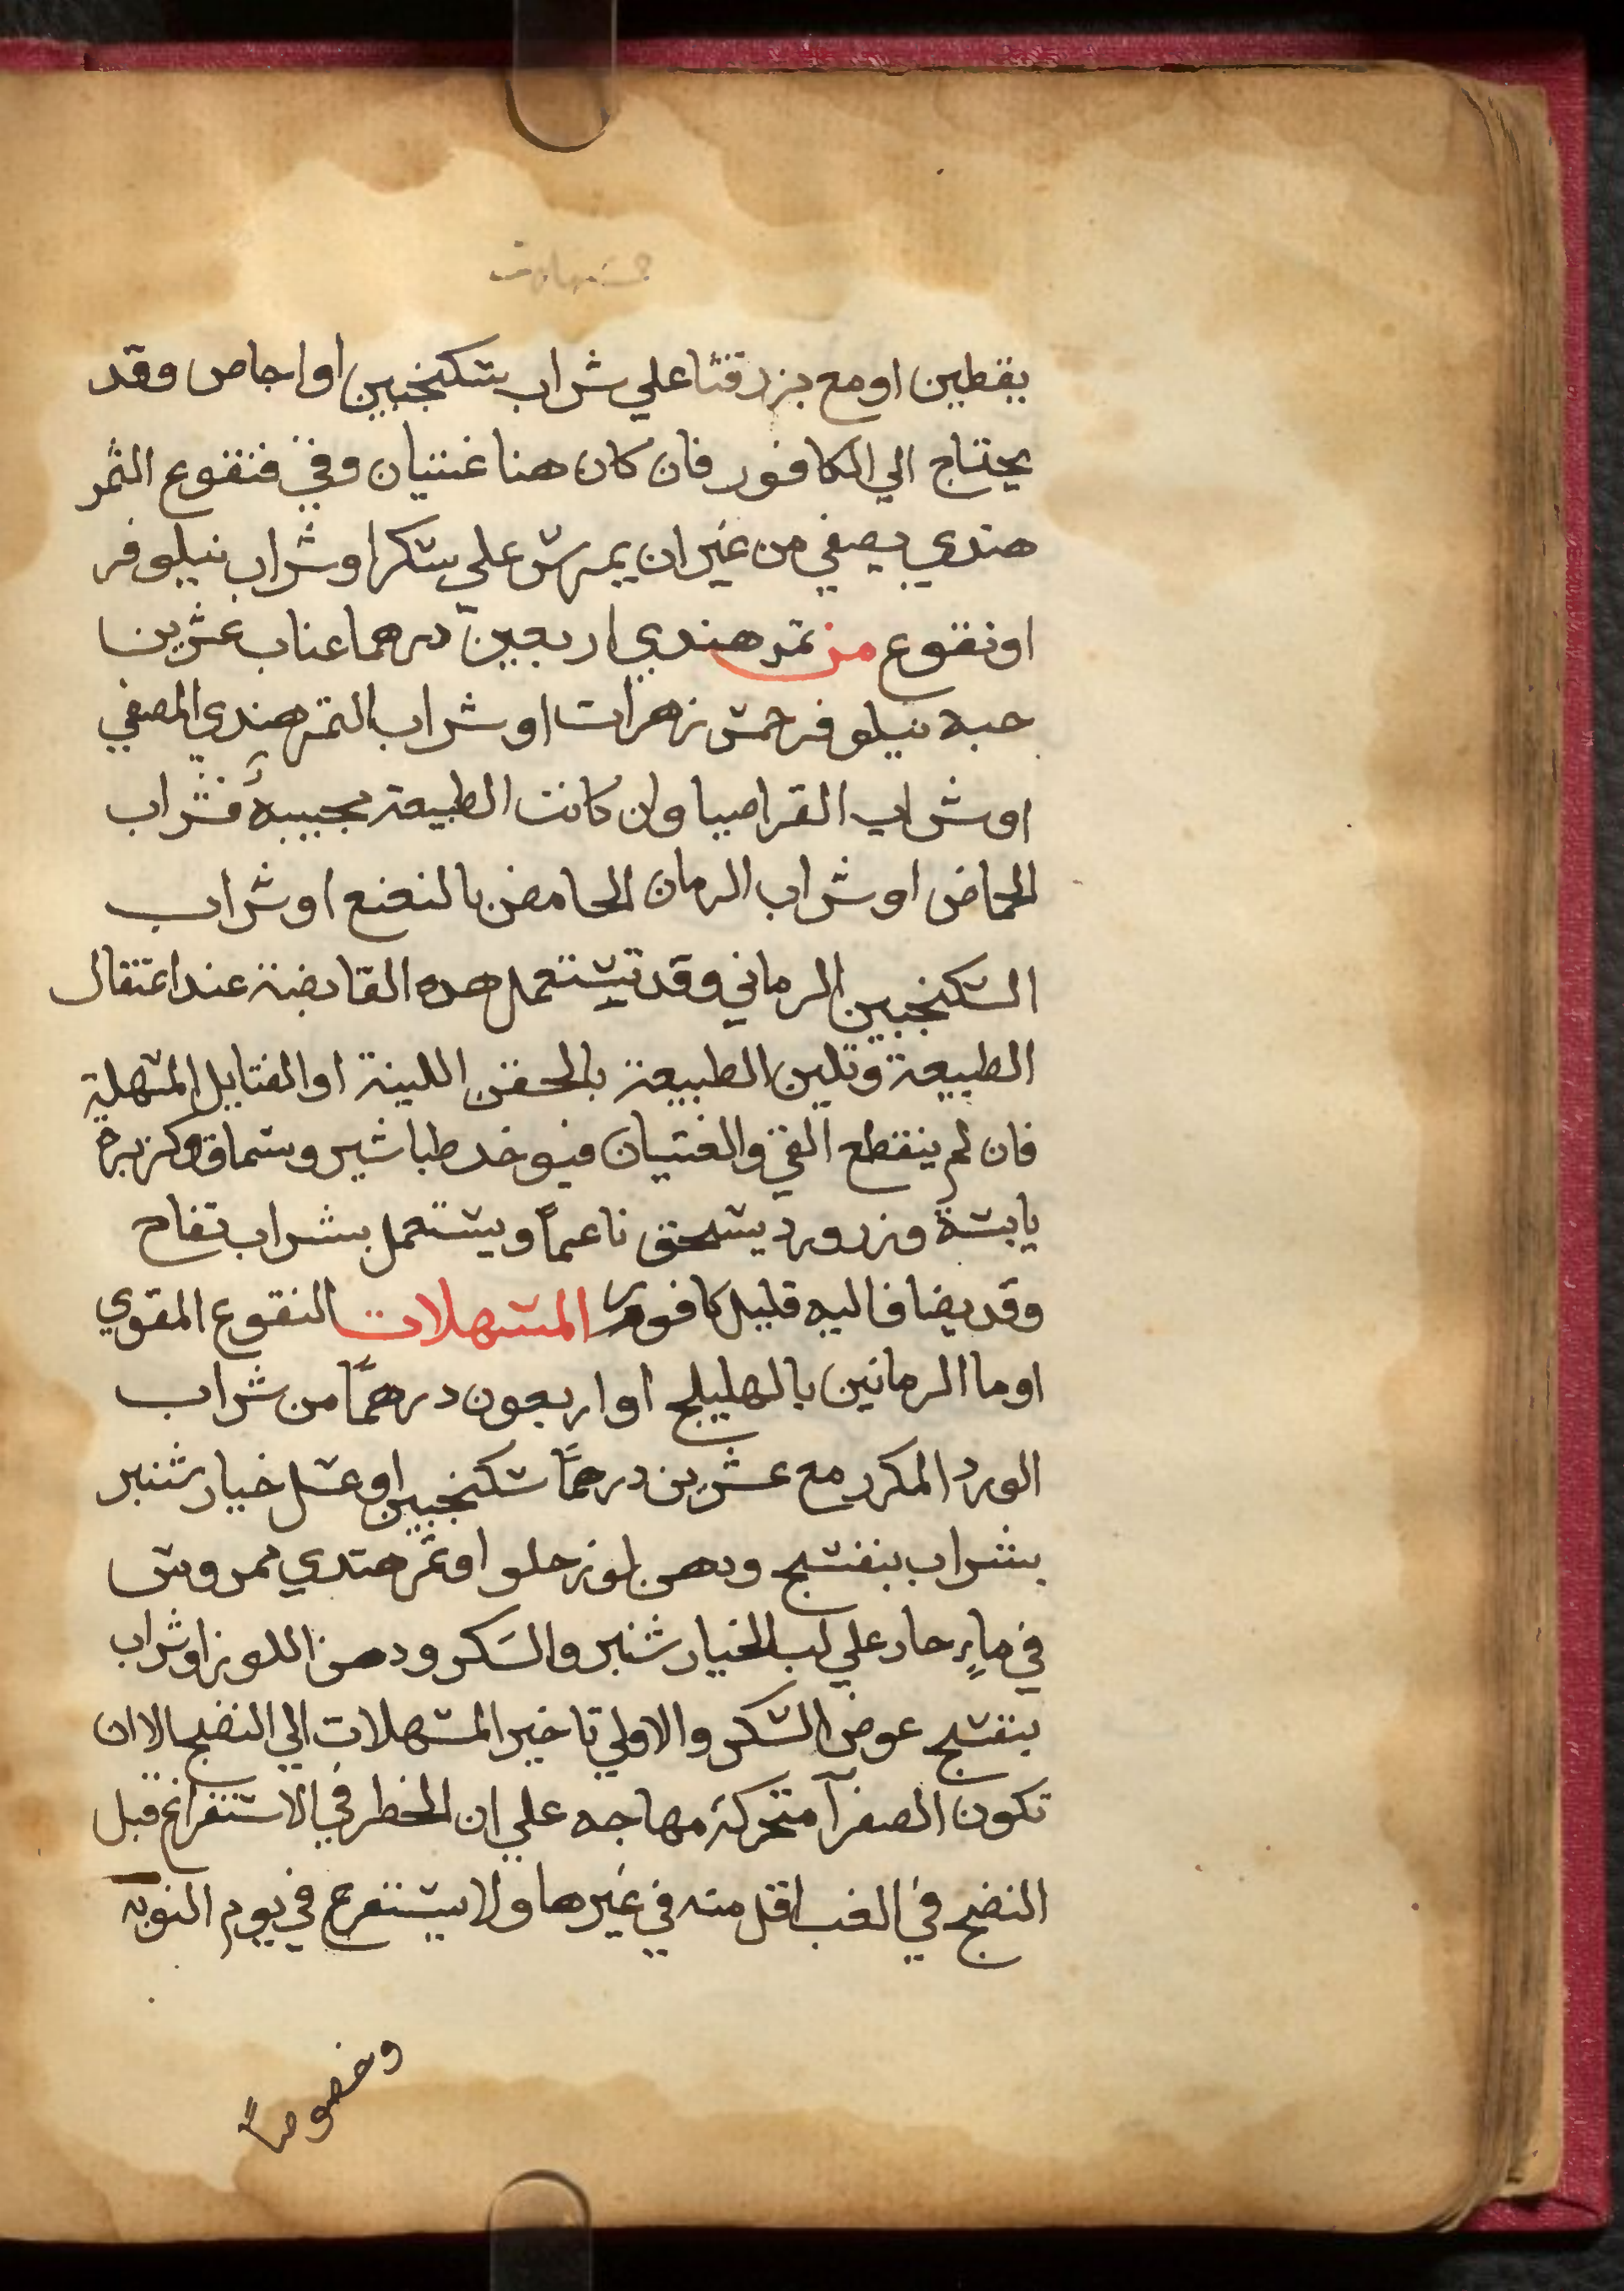 يقطين اومع بزر قثا علي شراب سكنجبين او اجاص وقد
يحتاج الي الكافور فان كان هنا غثيان وقي فنقوع الثمر
هندي يصفي من غير ان يمرس علي سكر او شراب نيلوفر
او نقوع من تمر هندي اربعين درهما عناب عشرين
حبه نيلوفر خمس زهرات او شراب التمر هندي المصفي
او شراب القراصيا وان كانت الطبيعة مجيبة فشراب
الحماض او شراب الرمان الحامض بالنعنع او شراب
السكنجبين الرماني وقد تستعمل هده القابضة عند اعتقال
الطبيعة وتلين الطبيعة بالحقن اللينة او الفتايل المسهلة
فان لم ينقطع القي والغثيان فيوخد طباشير وسماق وكزبرة
يابسة وزرورد يسحق ناعماً ويستعمل بشراب تفاح
وقد يضاف اليه قليل كافور المسهلات النقوع المقوي
او ما الرمانين بالهليلج او اربعون درهماً من شراب
الورد المكرر مع عشرين درهماً سكنجبين او عسل خيار شنبر
بشراب بنفسج ودهن لوز حلو او تمر هندي ممروس
في ماءٍ حار علي لب الخيار شنبر والسكر ودهن اللوز او شراب
بنفسج عوض السكر والاولي تاخير المسهلات الي النضج الا ان
تكون الصفرآ متحركة مهاجه علي ان الخطر في الاستفراغ قبل
النضج في الغب اقل منه في غيرها ولا يستفرغ في يوم النوبة
وخصوصاً